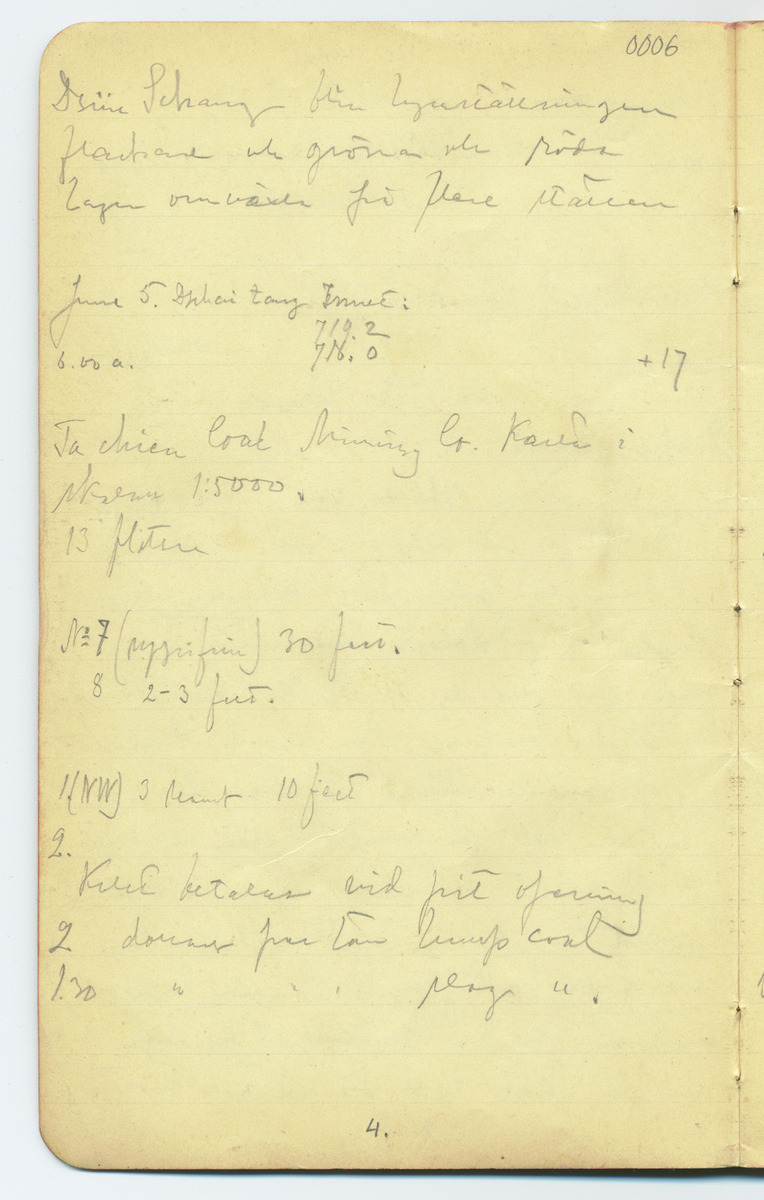 0006
Dsiin Schang blir lagerställningen
flackare och gröna och röda
lager omväxla på flere ställen
June 5. Dschai tang
719.2
6.00 a. 716.0 +17
Ta chien Coal Mining Co. Karta i
skalan 1:5000.
13 flötser
No 7 (uppifrån) 30 feet.
8 2-3 feet.
1 (NW) 3 10 feet
2.
Kolet betalas vid pit opening
2 dollars per ton lump coal
1.30 " " " slag " .
4.